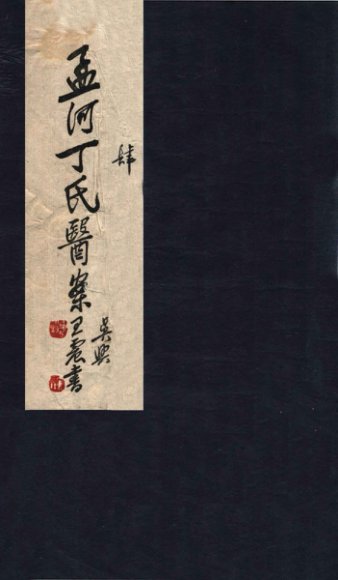 孟河丁氏醫案
肆
吳興
王震書